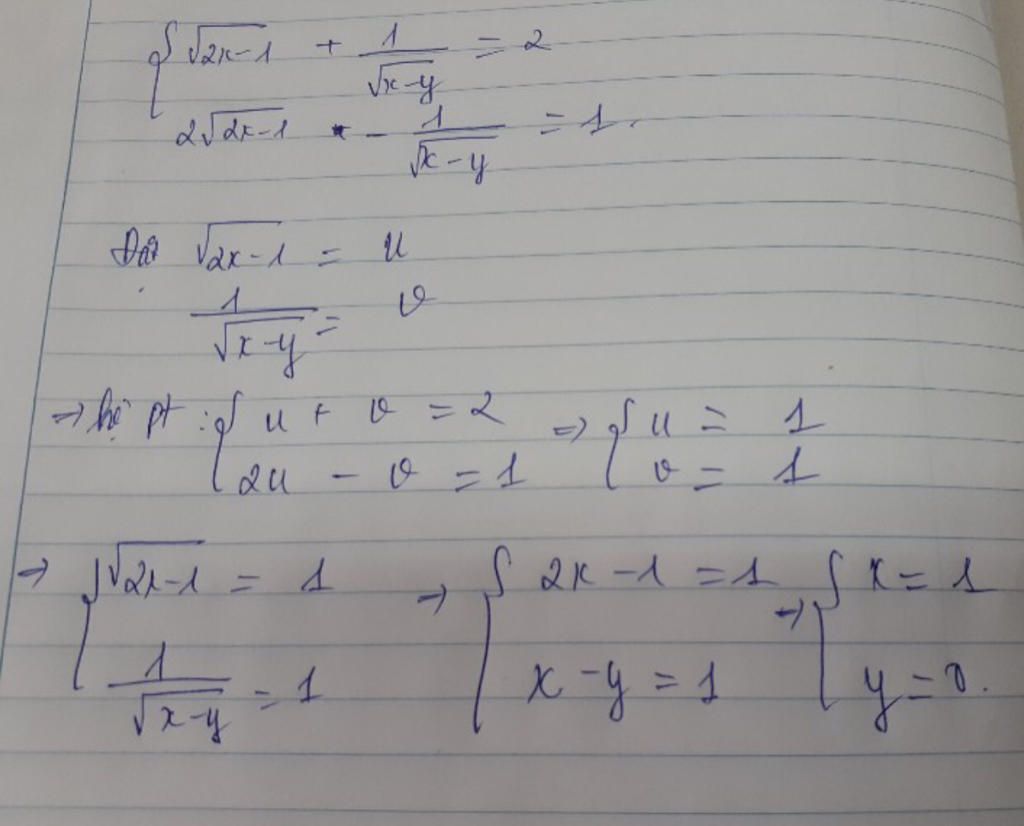 { √(2x-1) + 1/√(x-y) = 2
2√(2x-1) - 1/√(x-y) = 1.
Đặt √(2x-1) = u
1/√(x-y) = v
=> hệ pt : { u + v = 2 => { u = 1
2u - v = 1 v = 1
→ { √(2x-1) = 1 → { 2x - 1 = 1 → { x = 1
1/√(x-y) = 1 x - y = 1 y = 0.